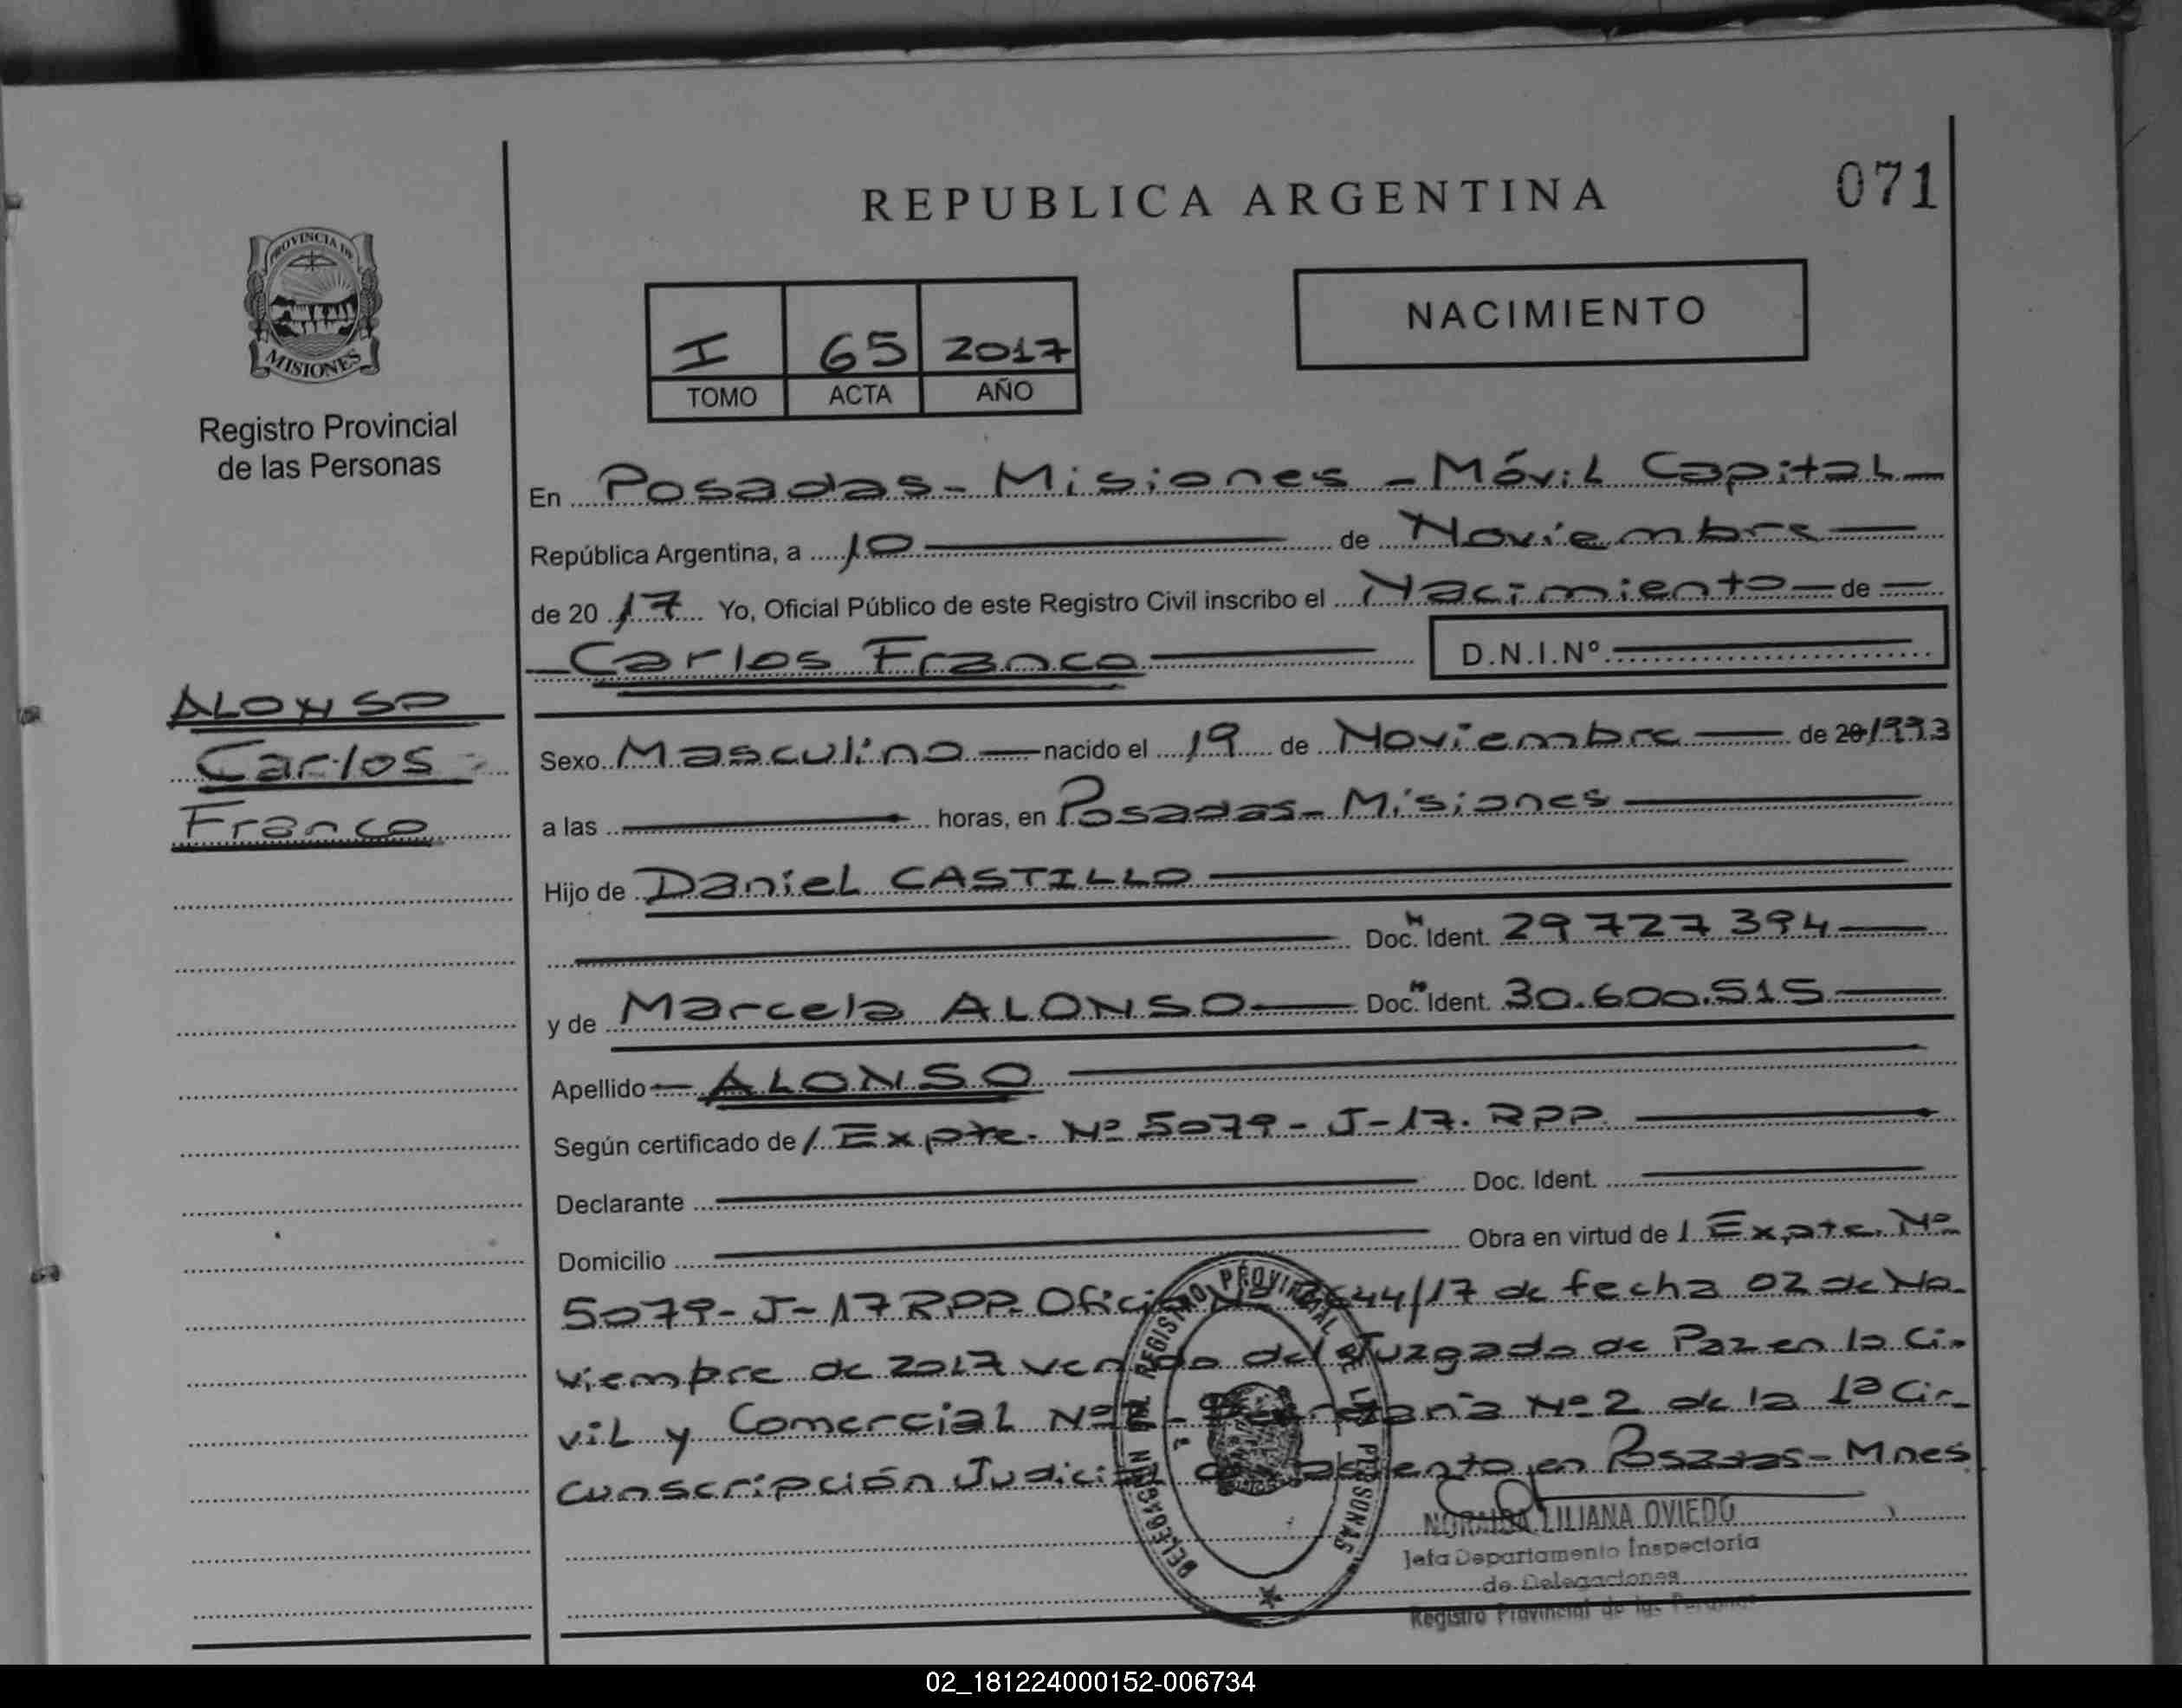 REPUBLICA ARGENTINA
071
PROVINCIA DE
MISIONES
Registro Provincial
de las Personas
I 65 2017
TOMO ACTA AÑO
NACIMIENTO
En Posadas - Misiones - Móvil Capital
República Argentina, a 10 de Noviembre
de 20 17 Yo, Oficial Público de este Registro Civil inscribo el Nacimiento de
Carlos Franco D.N.I.Nº
ALONSO
Carlos
Franco
Sexo Masculino nacido el 19 de Noviembre de 20/1993
a las horas, en Posadas - Misiones
Hijo de Daniel CASTILLO
Doc. Ident. 29 727 394
y de Marcela ALONSO Doc. Ident. 30.600.515
Apellido ALONSO
Según certificado de / Expte. Nº 5079 - J - 17. RPP.
Declarante Doc. Ident.
Domicilio Obra en virtud de / Expte. Nº
5079 - J - 17 RPP. Oficio Nº 44/17 de fecha 02 de No-
viembre de 2017 del Juzgado de Paz en lo Ci-
vil y Comercial Nº Nº 2 de la 1ª Cir-
cunscripción Judicial en Posadas - Mnes
DELEGACION DEL REGISTRO PROVINCIAL DE LAS PERSONAS
NORAIDA LILIANA OVIEDO
Jefa Departamento Inspectoría
de Delegaciones
Registro Provincial de las Personas
02_181224000152-006734